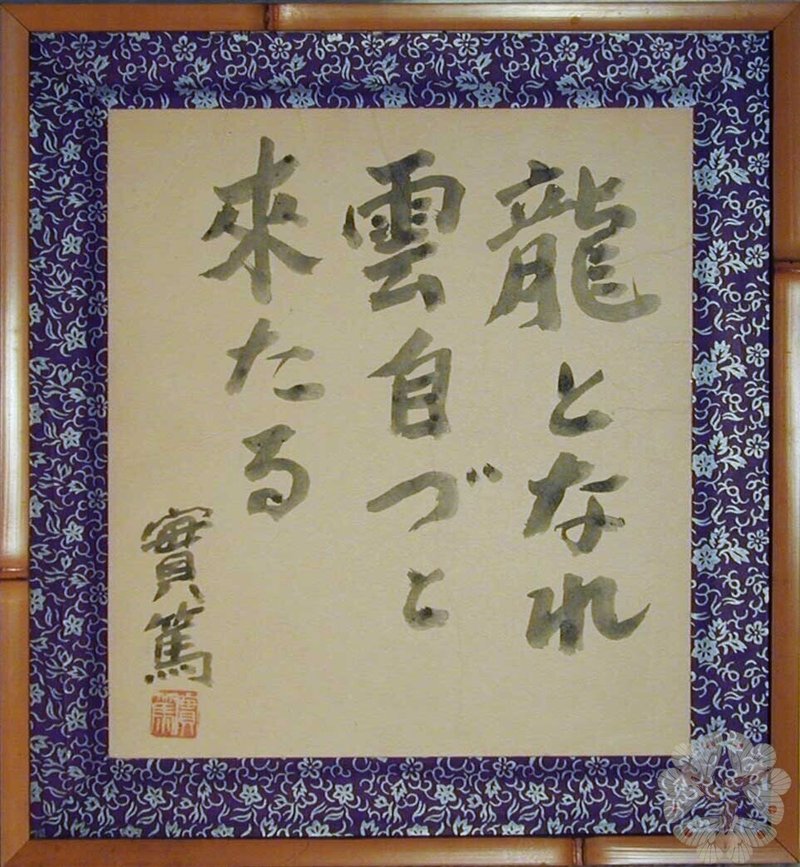 龍となれ
雲自づと
來たる
實篤
實篤